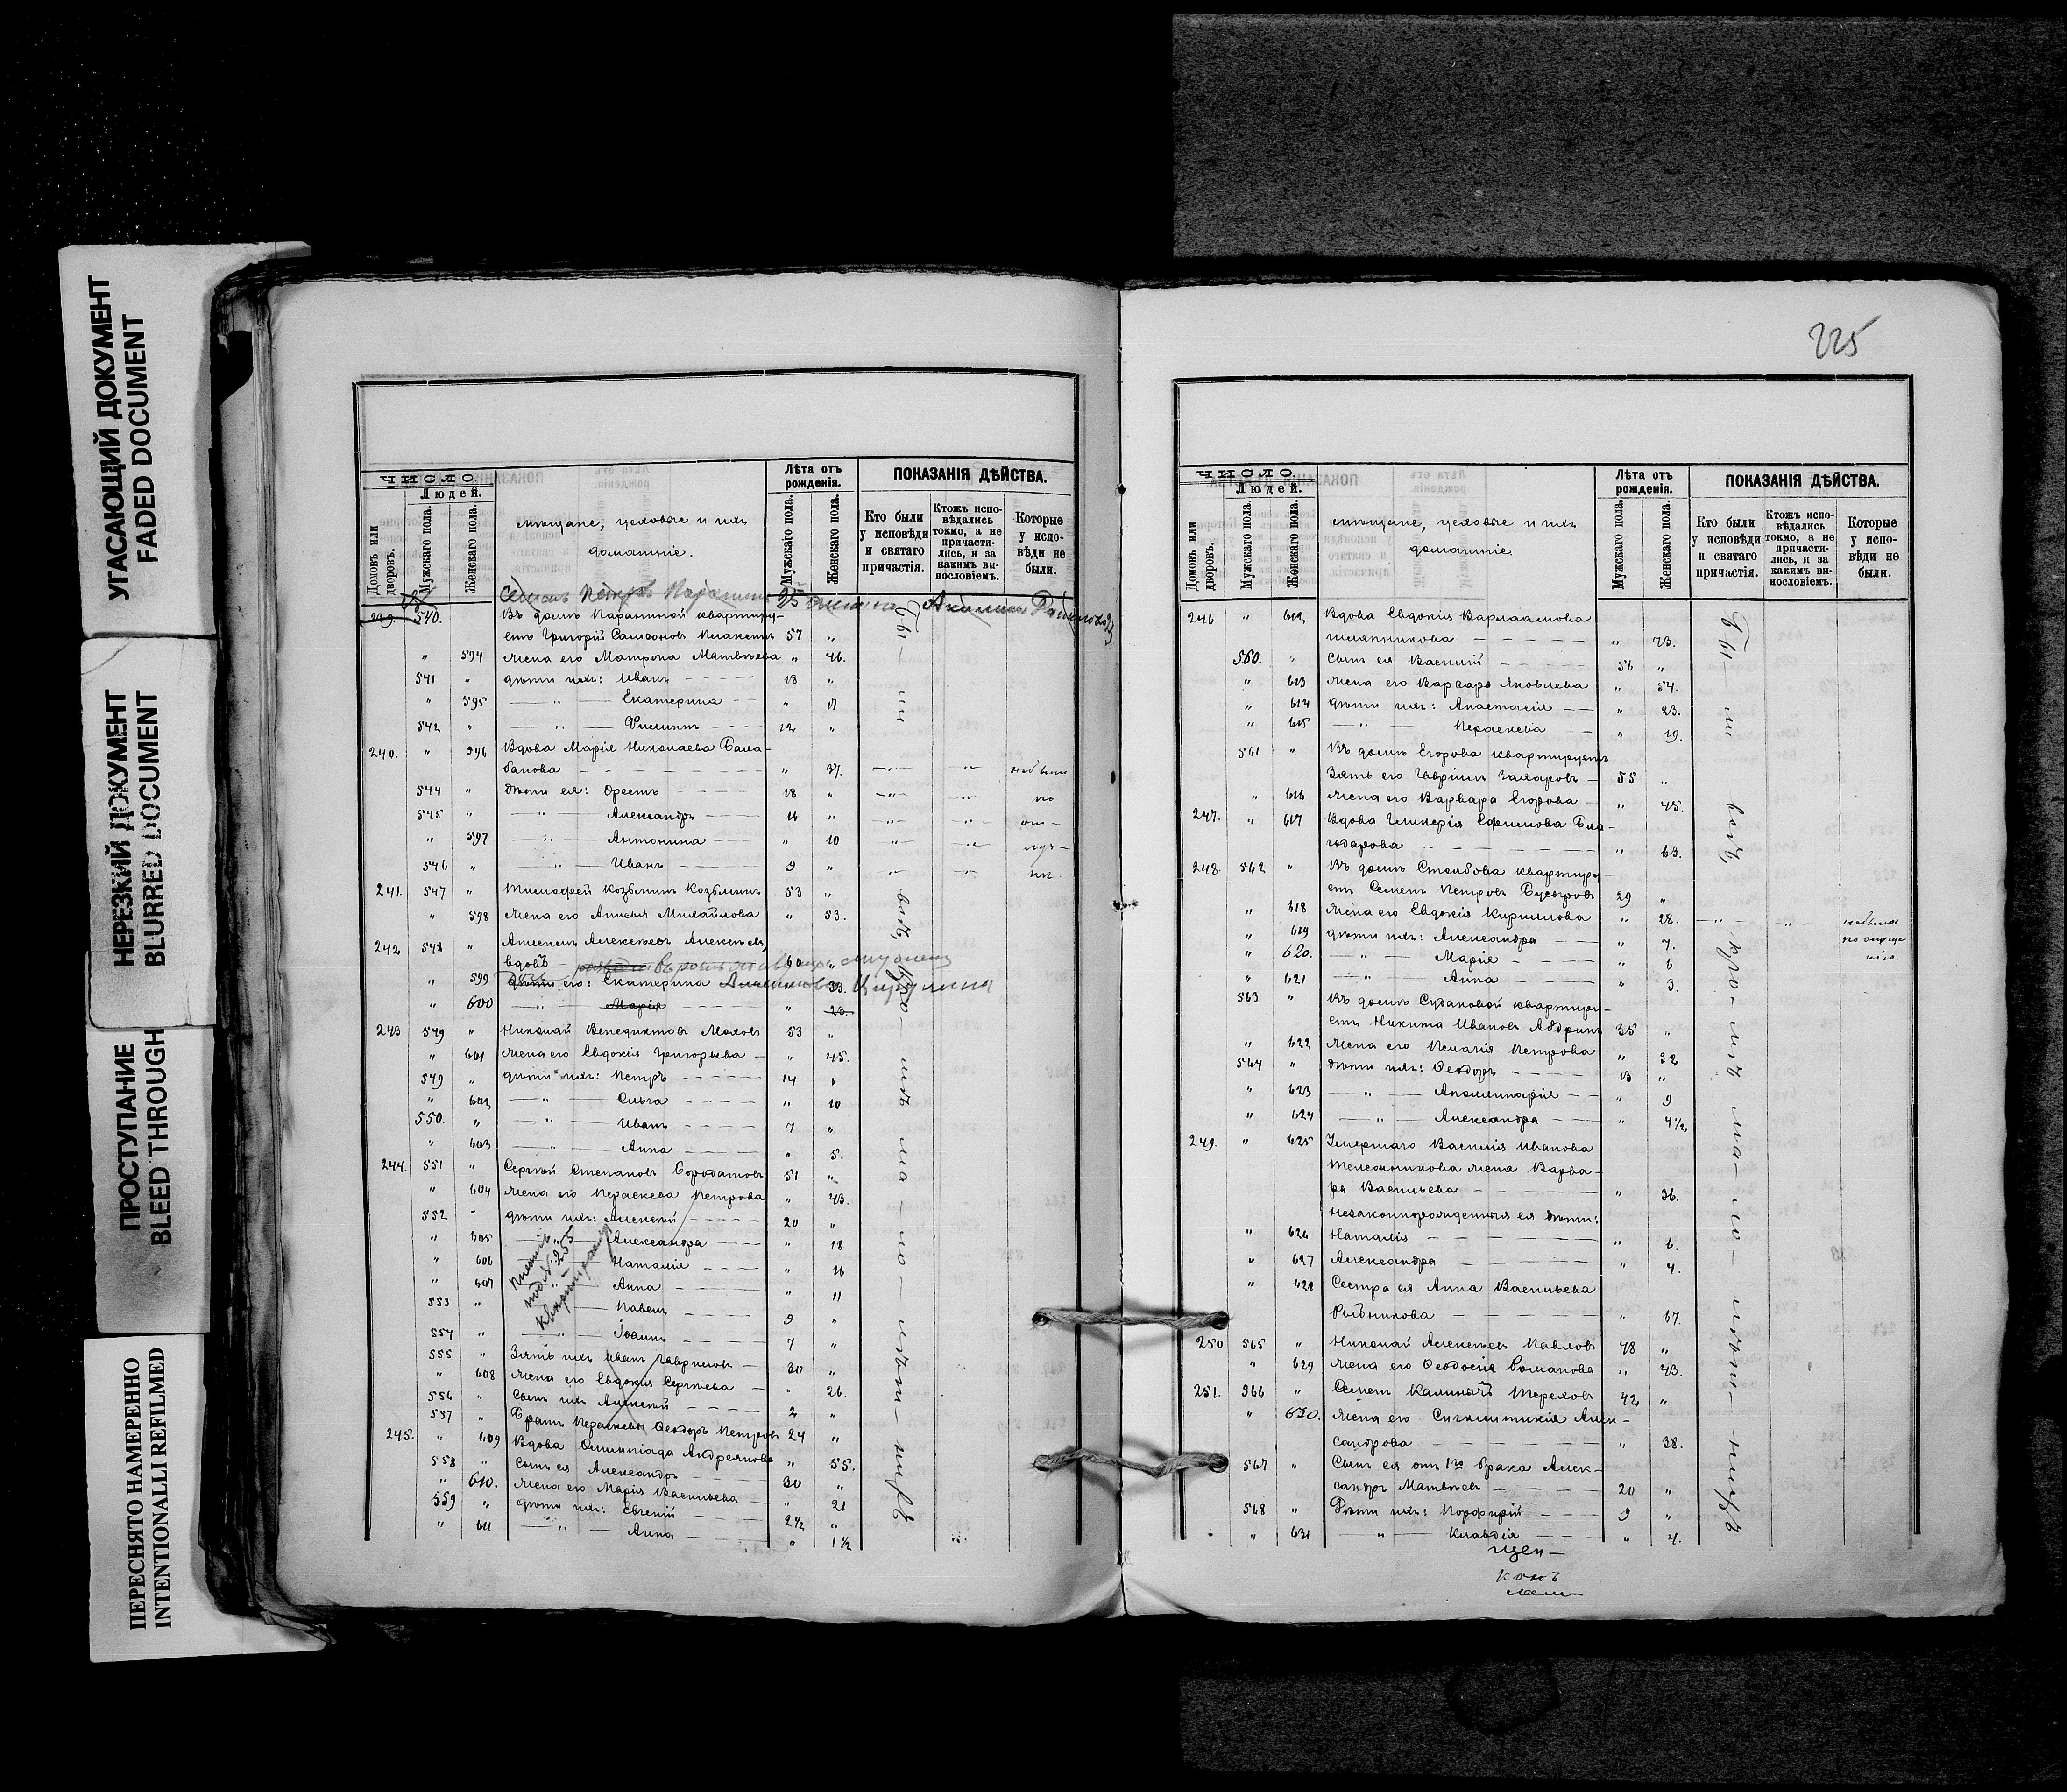 УГАСАЮЩИЙ ДОКУМЕНТ
FADED DOCUMENT
НЕРЕЗКИЙ ДОКУМЕНТ
BLURRED DOCUMENT
ПРОСТУПАНИЕ
BLEED THROUGH
ПЕРЕСНЯТО НАМЕРЕННО
INTENTIONALLI REFILMED
ЧИСЛО
Людей.
Домовъ или дворовъ.
Мужскаго пола.
Женскаго пола.
мѣщане, цеховые и ихъ
домашніе.
Лѣта отъ рожденія.
Мужскаго пола.
Женскаго пола.
ПОКАЗАНІЯ ДѢЙСТВА.
Кто были у исповѣди и святаго причастія.
Ктожъ исповѣдались токмо, а не причастились, и за какимъ винословіемъ.
Которые у исповѣди не были.
239. 540. Въ домѣ Паратиной квартиру-
етъ Григорій Самсоновъ 57 "
" 594 Жена его Матрона Матвѣева " 46.
541 " дѣти ихъ: Иванъ 18 "
" 595 — " — Екатерина " 17
542 " — " — Филиппъ 12 "
240. " 596 Вдова Марія Николаева Бала-
банова " 37. не были
544 " дѣти ея: Орестъ 18 " по
545 " — " — Александръ 16 " от-
" 597 — " — Антонина " 10 " луч-
546 " — " — Иванъ 9 "
241. 547 " Тимофей Козьминъ Козьминъ 53 "
" 598 Жена его Анисья Михайлова " 53.
242 548 " Алексѣй Алексѣевъ Алексѣевъ,
вдовъ 60 "
" 599 его: Екатерина 33.
" 600 — " — Марія " 23.
243 549 " Николай Венедиктовъ Моховъ 53 "
" 601 Жена его Евдокія Григорьева " 45.
549 " дѣти ихъ: Петръ 14 "
" 602 — " — Ольга " 10
550. " — " — Иванъ 7 "
" 603 — " — Анна " 5.
244. 551 " Сергѣй Степановъ Бородатовъ 51 "
" 604 Жена его Параскева Петрова " 43.
552 " дѣти ихъ: Алексѣй 20 "
" 605 — " — Александра " 18
" 606 Наталія " 16
" 607 — " — Анна " 11
553 " Павелъ 9 "
554 " — " — Іоаннъ 7 "
555 " Зять ихъ Иванъ Гавриловъ 30 "
" 608 Жена его Евдокія Сергѣева " 26.
556 " Сынъ ихъ Алексѣй 2 "
557 " Братъ Параскевы Ѳеодоръ Петровъ 24 "
245. " 609 Вдова Олимпіада Андреянова " 55.
558 " Сынъ ея Александръ 30 "
" 610. Жена его Марія Васильева " 21
559 " дѣти ихъ: Евгеній 2½ "
" 611 — " — Анна " 1½
225
ЧИСЛО
Людей.
Домовъ или дворовъ.
Мужскаго пола.
Женскаго пола.
мѣщане, цеховые и ихъ
домашніе.
Лѣта отъ рожденія.
Мужскаго пола.
Женскаго пола.
ПОКАЗАНІЯ ДѢЙСТВА.
Кто были у исповѣди и святаго причастія.
Ктожъ исповѣдались токмо, а не причастились, и за какимъ винословіемъ.
Которые у исповѣди не были.
246 " 612 Вдова Евдокія Варлаамова
Шляпникова " 73.
560. " Сынъ ея Василій 56 "
" 613 Жена его Варвара Яковлева " 54.
" 614 дѣти ихъ: Анастасія " 23.
" 615 — " — Параскева " 19.
561 " Въ домѣ Егорова квартируетъ
Зять его Гавріилъ Захаровъ 55 "
" 616 Жена его Варвара Егорова " 45.
247. " 617 Вдова Гликерія Ефимова Бла-
годарова " 63.
248. 562 " Въ домѣ Столбова квартиру-
етъ Семенъ Петровъ 29 "
" 618 Жена его Евдокія Кириллова " 28. не были
" 619 дѣти ихъ: Александра " 7.
" 620. — " — Марія " 6
" 621 — " — Анна " 3.
563 " Въ домѣ Судаковой квартиру-
етъ Никита Ивановъ 35 "
" 622 Жена его Пелагія Петрова " 32
564 " дѣти ихъ: Ѳеодоръ 13 "
" 623 — " — Аполлинарія " 9
" 624 — " — Александра " 4½
249. " 625 Умершаго Василія Иванова
жена Варва-
ра Васильева " 36.
Незаконнорожденныя ея дѣти:
" 626 Наталія " 6.
" 627 Александра " 4.
" 628 Сестра ея Анна Васильева
Рыбникова " 67.
250 565 " Николай Алексѣевъ Павловъ 48 "
" 629 Жена его Ѳеодосія Романова " 43.
251. 566 " Семенъ Калинычъ Тереховъ 42 "
" 630. Жена его Сигклитикія Алек-
сандрова " 38.
567 " Сынъ ея отъ 1го брака Алек-
сандръ Матвѣевъ 20 "
568 " Дѣти ихъ: Порфирій 9 "
" 631 " — Клавдія " 4.